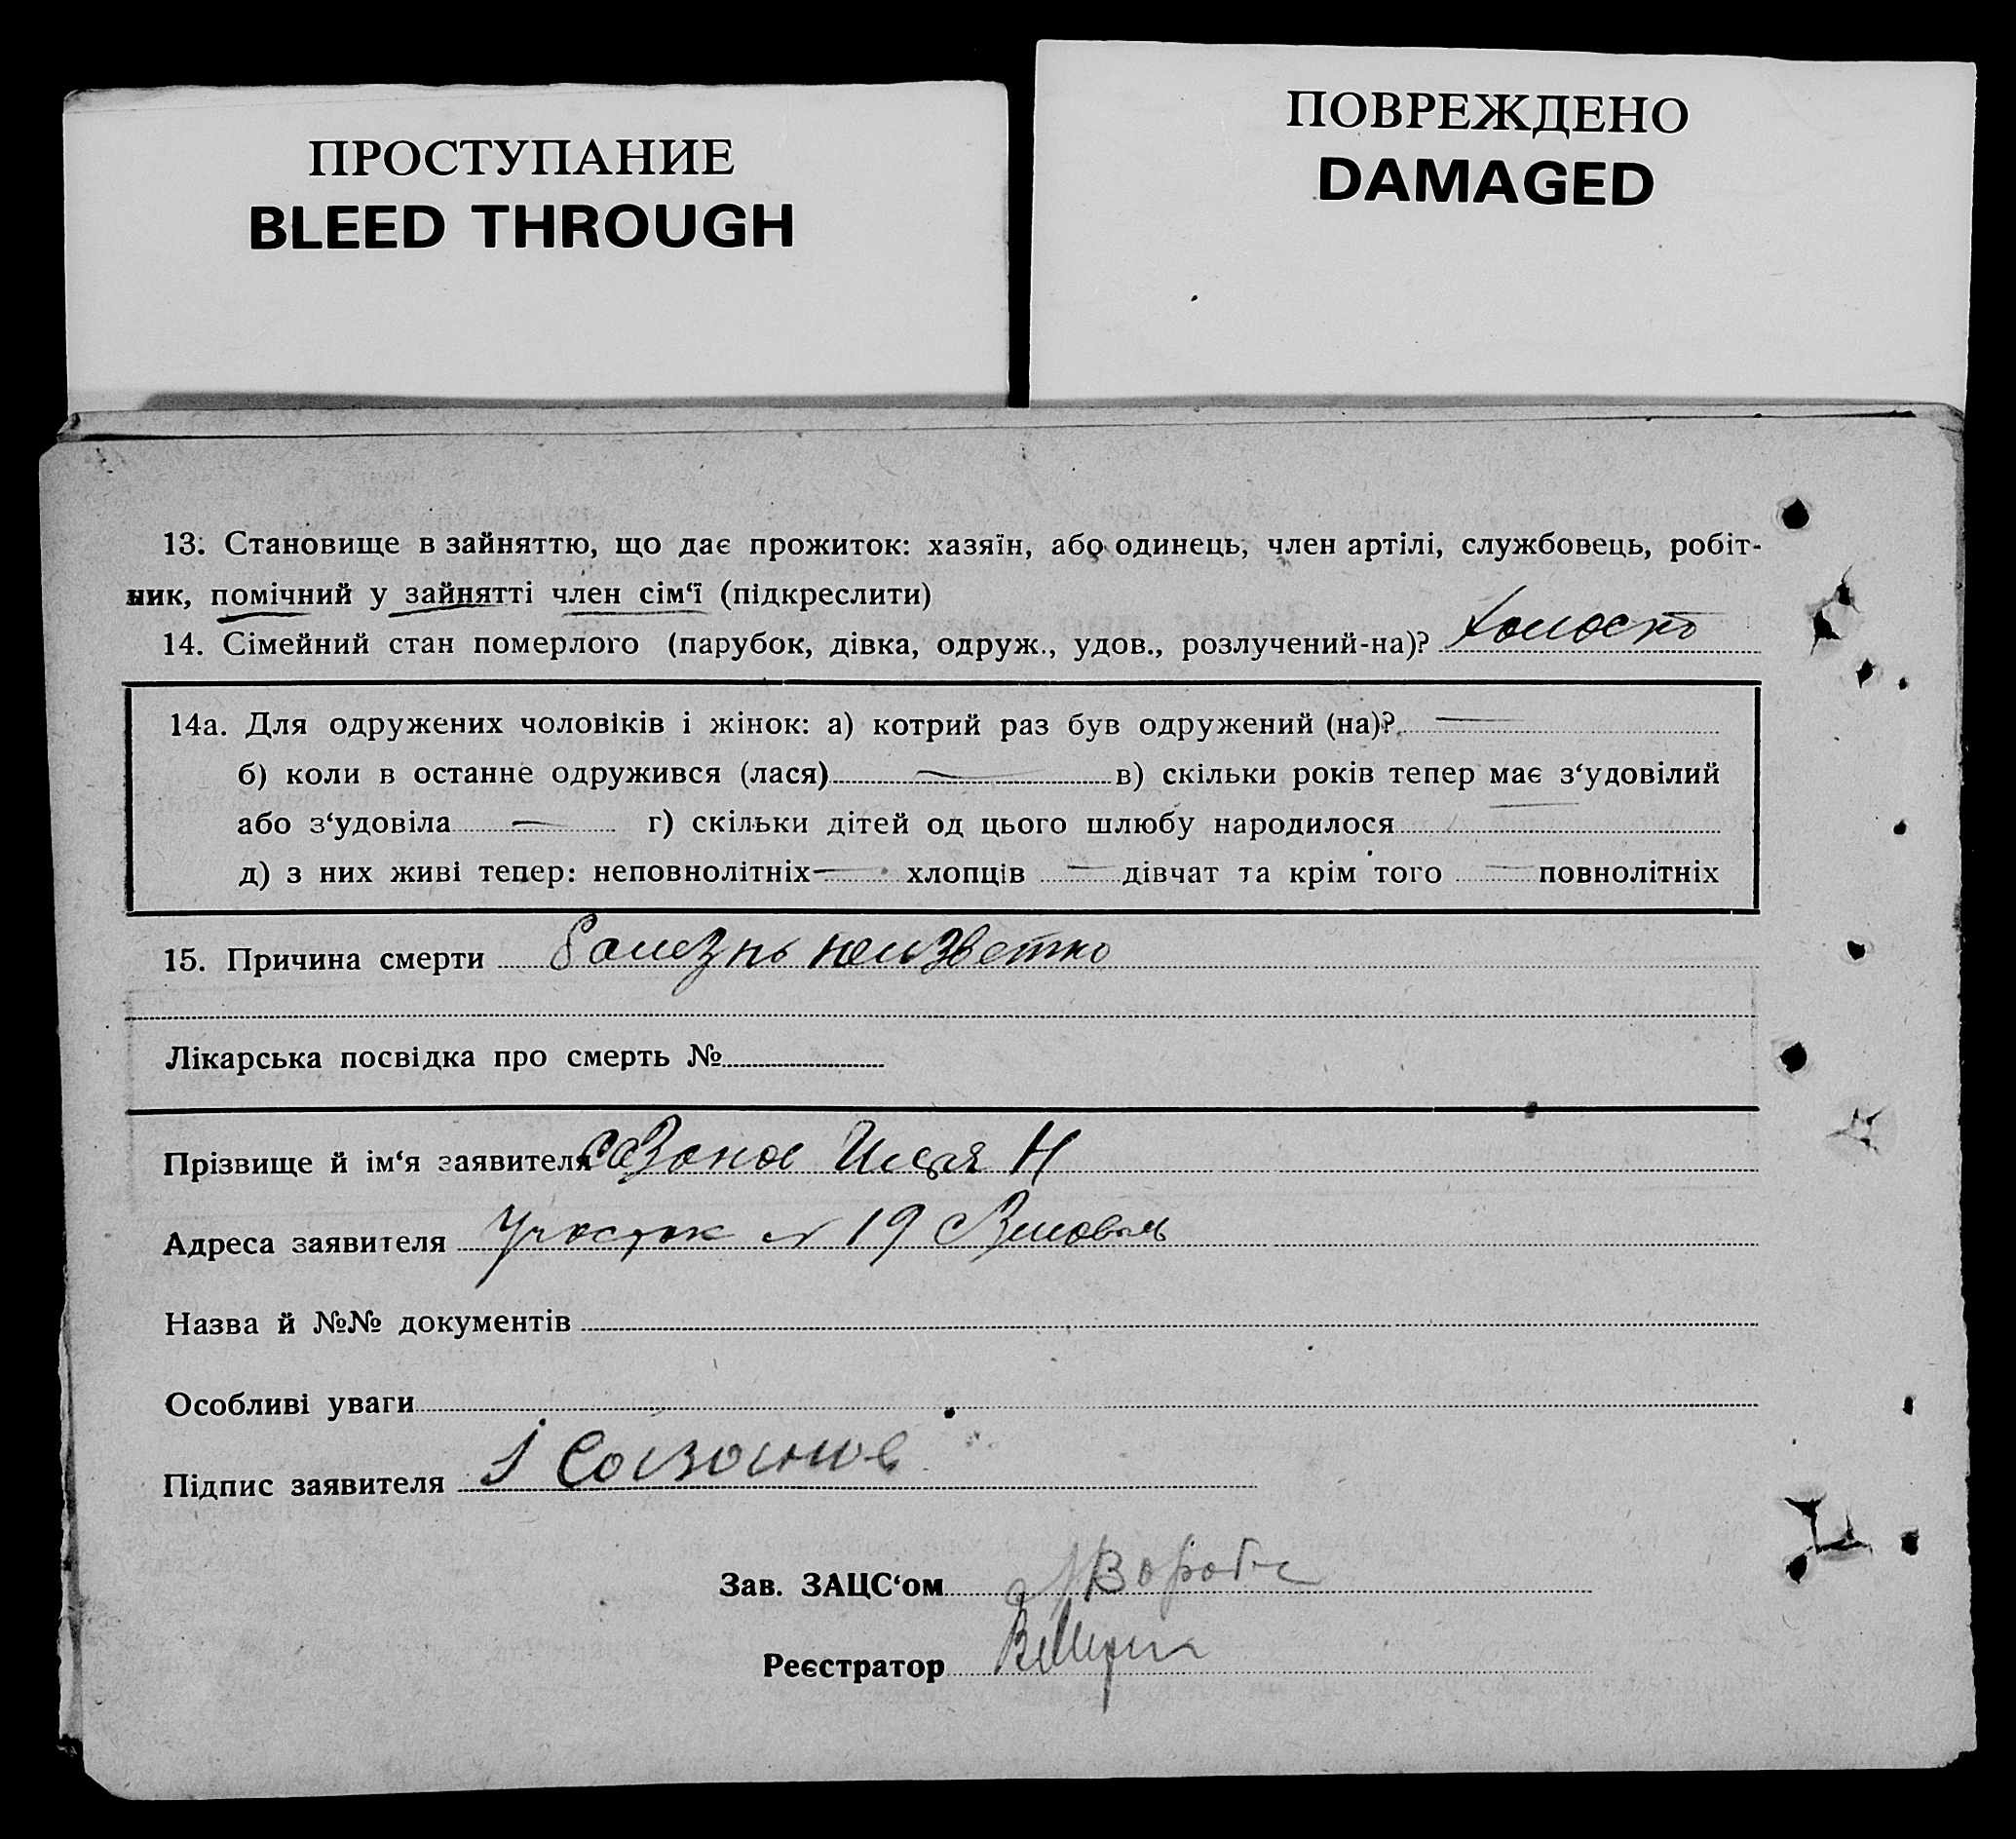 ПРОСТУПАНИЕ
BLEED THROUGH
ПОВРЕЖДЕНО
DAMAGED
13. Становище в зайняттю, що дає прожиток: хазяїн, або одинець, член артілі, службовець, робіт-
ник, помічний у зайнятті член сім‘ї (підкреслити)
14. Сімейний стан померлого (парубок, дівка, одруж., удов., розлучений-на)?
14а. Для одружених чоловіків і жінок: а) котрий раз був одружений (на)? —
б) коли в останнє одружився (лася) — в) скільки років тепер має з‘удовілий
або з‘удовіла — г) скільки дітей од цього шлюбу народилося
д) з них живі тепер: неповнолітніх — хлопців — дівчат та крім того — повнолітніх
15. Причина смерти болезнь неизветно
Лікарська посвідка про смерть №
Прізвище й ім‘я заявителя Илья Н
Адреса заявителя Участок № 19
Назва й №№ документів
Особливі уваги
Підпис заявителя
Зав. ЗАЦС‘ом
Реєстратор